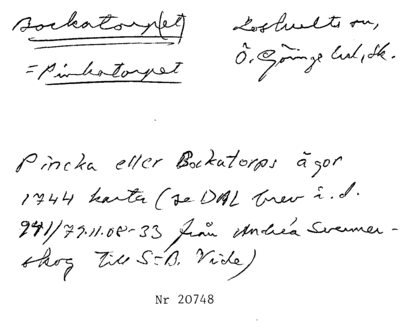 Bockatorp(et)
= Pinkatorpet
Loshults sn,
Ö. Göinge hd, Sk.
Pincka eller Bockatorps ägor
1744 karta (se DAL brev i.d.
941/79.11.08-33 från Andréa Svermer-
skog till S-B. Vide)
Nr 20748